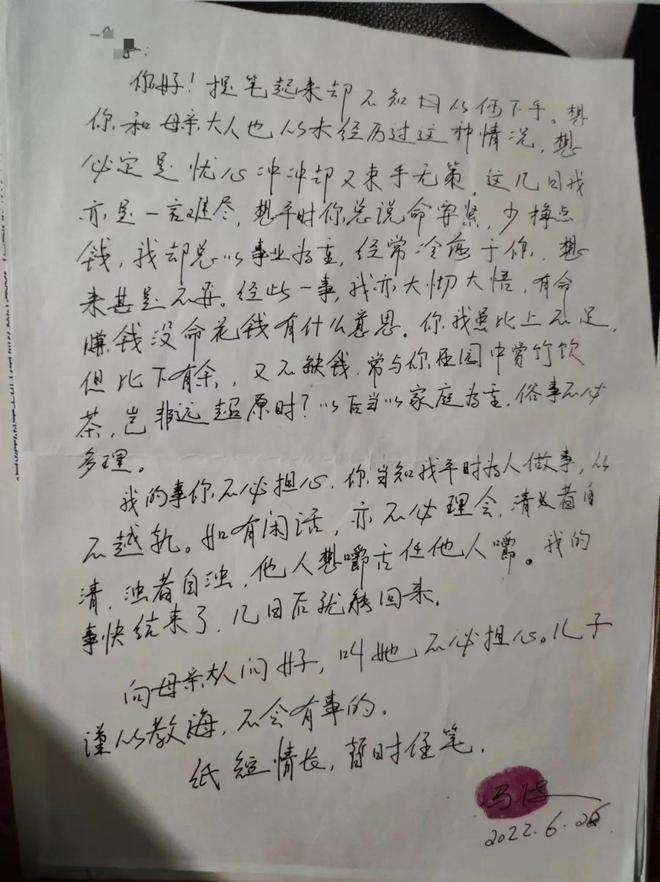 你好！提笔起来却不知从何下手。想
你和母亲大人也从未经历过这种情况，想
必定是忧心冲冲却又束手无策。这几日我
亦是一言难尽，想平时你总说命要紧，少挣点
钱，我却总以事业为重，经常冷落于你，想
来甚是不再。经此一事，我亦大彻大悟，有命
赚钱没命花钱有什么意思。你我虽比上不足，
但比下有余，又不缺钱，常与你在园中赏竹饮
茶，岂非远超原时？以后当以家庭为重，俗事不必
多理。
我的事你不必担心，你当知我平时为人做事，从
不越轨。如有闲话，亦不必理会，清者自
清，浊者自浊，他人想嚼舌任他人嚼。我的
事快结束了，几日后就能回来。
向母亲大人问好，叫她不必担心。儿子
谨从教诲，不会有事的。
纸短情长，暂时住笔。
冯
2022.6.26